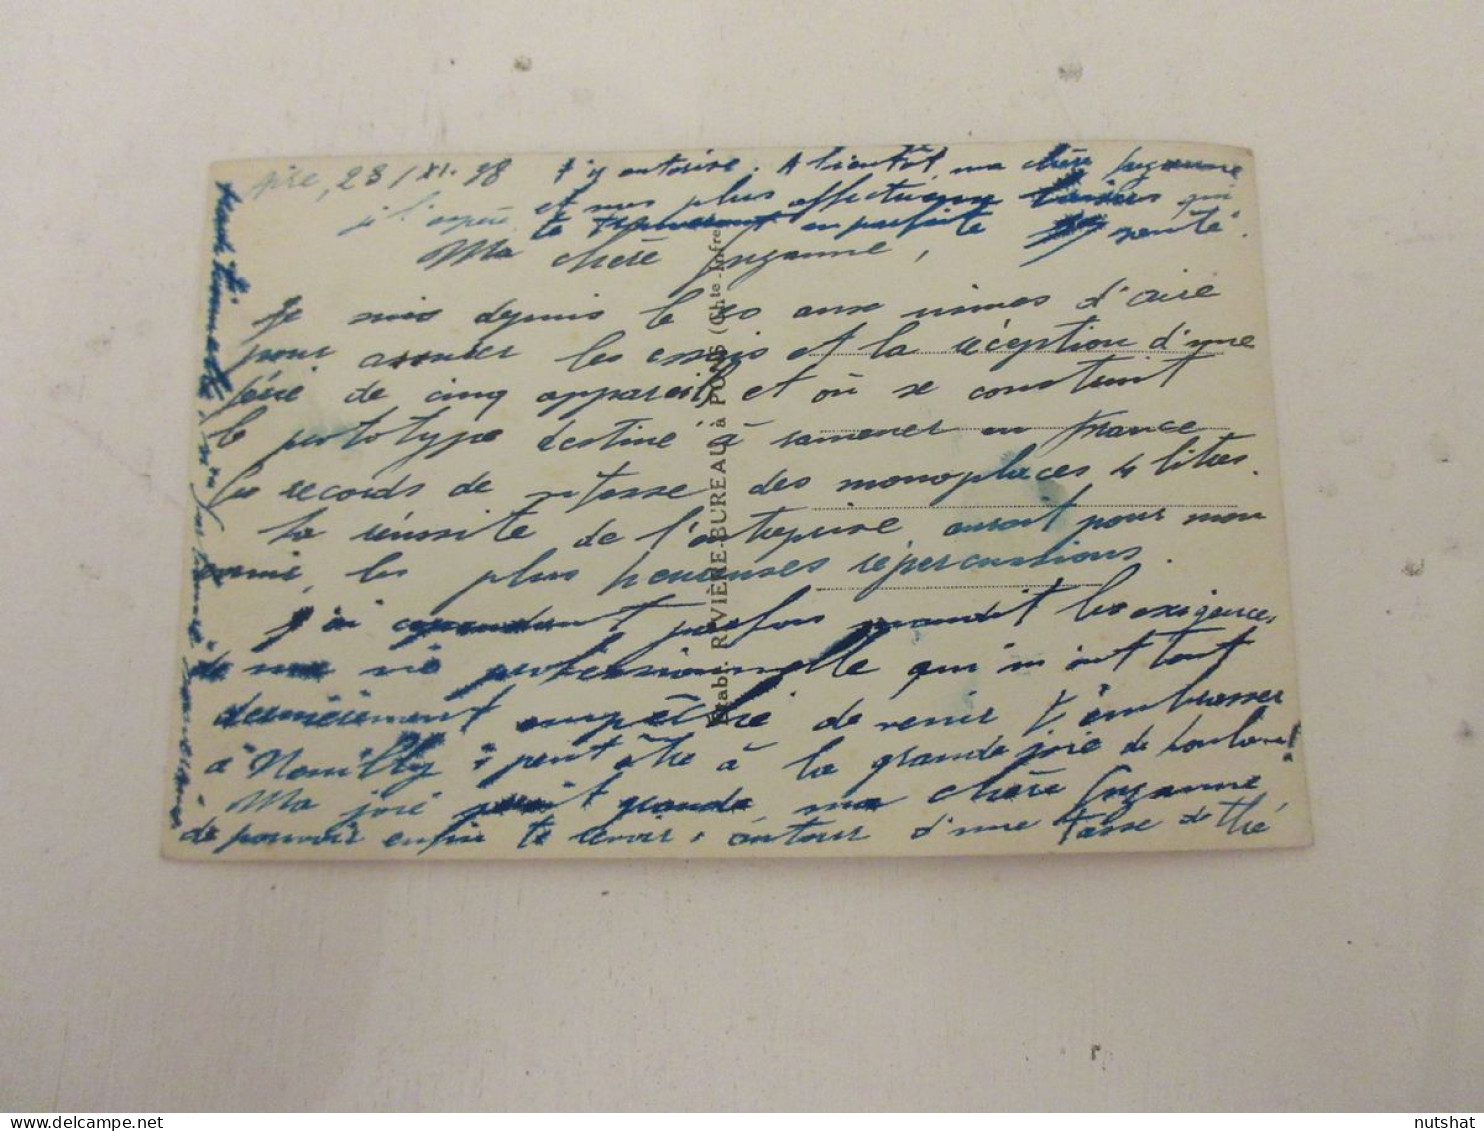 Aire, 23/XI.48
Ma chère Suzanne,
Je suis depuis le 20 aux usines d'Aire
pour assurer les essais et la réception d'une
série de cinq appareils et où se construit
le prototype destiné à ramener en France
les records de vitesse des monoplaces 4 litres.
La réussite de l'entreprise aurait pour mon
ami, les plus heureuses répercussions.
J'ai cependant parfois maudit les exigences
de ma vie professionnelle qui m'ont tout
dernièrement empêché de venir t'embrasser
à Neuilly, peut être à la grande joie de
Ma joie serait grande ma chère Suzanne
de pouvoir enfin te revoir, autour d'une tasse de thé
t'y autorise. A bientôt, ma chère Suzanne
j'espère et mes plus affectueux baisers qui
te trouveront en parfaite santé.
Etabl. RIVIÈRE-BUREAU à PONS (Chte-Infre)
nutshat